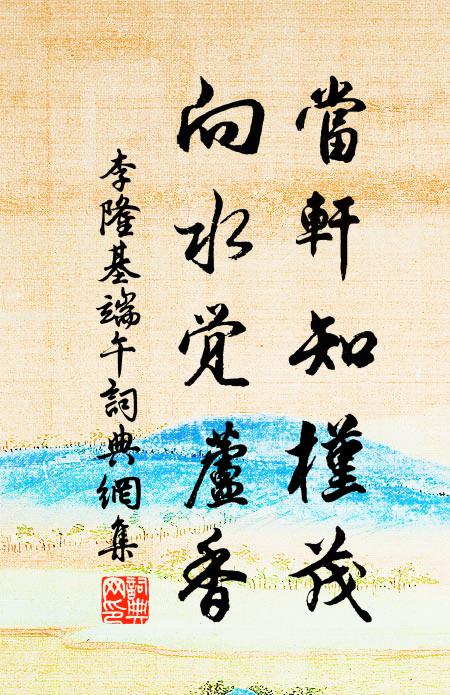 當軒知槿茂
向水覺蘆香
李隆基端午詞典網集